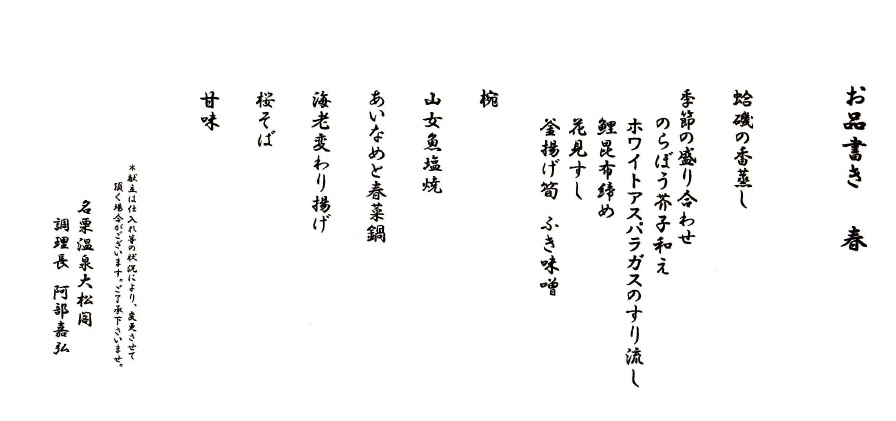 お品書き　春
蛤磯の香蒸し
季節の盛り合わせ
のらぼう芥子和え
ホワイトアスパラガスのすり流し
鯉昆布締め
花見すし
釜揚げ筍　ふき味噌
椀
山女魚塩焼
あいなめと春菜鍋
海老変わり揚げ
桜そば
甘味
＊献立は仕入れ等の状況により、変更させて
頂く場合がございます。ご了承下さいませ。
名栗温泉大松閣
調理長　阿部嘉弘